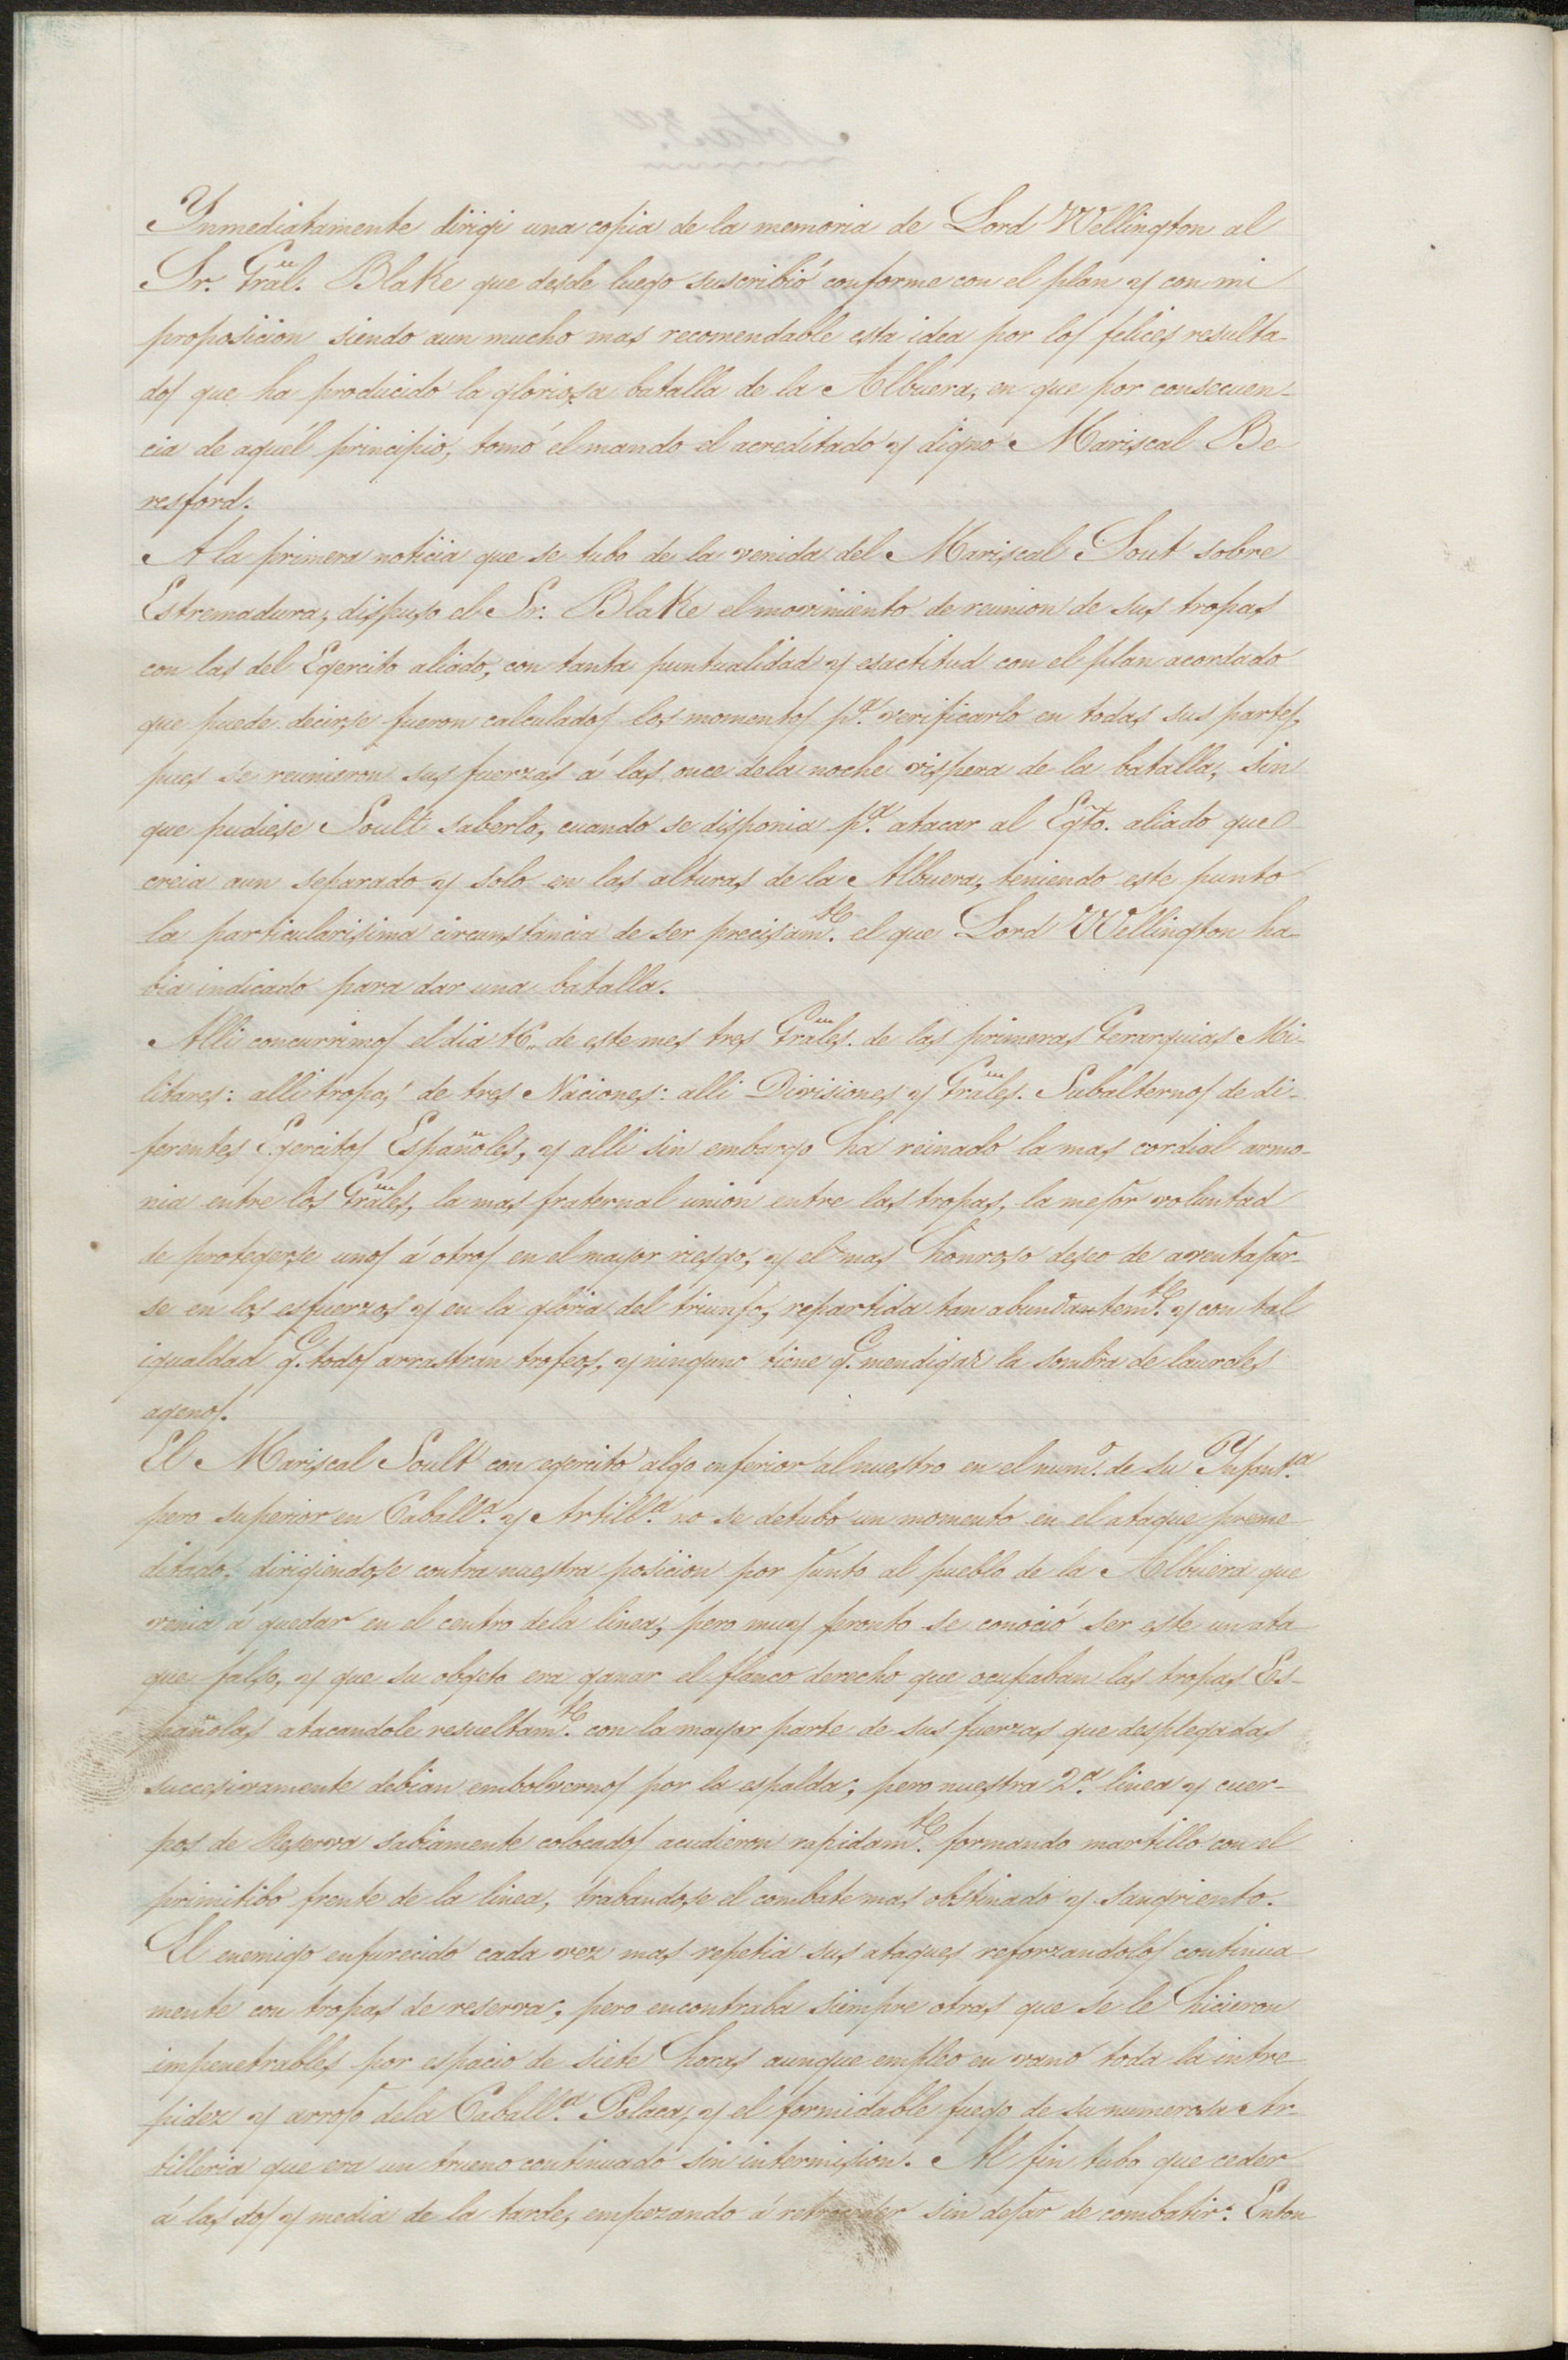 Ynmediatamente dirigi una copia de la memoria de Lord Wellington al
Sr. Gral. Blake que desde luego suscribió conforme con el plan y con mi
proposicion siendo aun mucho mas recomendable esta idea por los felices resulta-
dos que ha producido la gloriosa batalla de la Albuera, en que por consecuen-
cia de aquél principio, tomó él mando el acreditado y digno Mariscal Be
resford.
A la primera noticia que se tubo de la venida del Mariscal Sout sobre
Estremadura, dispuso el Sr. Blake el movimiento de reunion de sus tropas
con las del Egercito aliado, con tanta puntualidad y esactitud con el plan acordado
que puede decirse fueron calculados los momentos pª. verificarlo en todas sus partes,
pues se reunieron sus fuerzas á las once dela noche vispera de la batalla, sin
que pudiese Soult saberlo, cuando se disponia pª. atacar al Egto. aliado que
creia aun separado y solo en las alturas de la Albuera, teniendo este punto
la particularisima circunstancia de ser precisamte. el que Lord Wellington ha
bia indicado para dar una batalla.
Alli concurrimos el dia 16,, de este mes tres Grales. de las primeras Gerarquias Mi-
litares: alli tropas de tres Naciones: alli Divisiones y Grales. Subalternos de di-
ferentes Egercitos Españoles, y alli sin embargo ha reinado la mas cordial armo-
nia entre los Grales, la mas fraternal union entre las tropas, la mejor voluntad
de protegerse unos á otros en el mayor riesgo, y el mas honroso deseo de aventajar-
se en los esfuerzos y en la gloria del triunfo, repartida tan abundantemte. y con tal
igualdad q. todos arrastran trofeos, y ninguno tiene q. mendigar la sombra de laureles
agenos.
El Mariscal Soult con egercito algo enferior al nuestro en el numº. de su Ynfantª.
pero superior en Caballª. y Artillª. no se detubo un momento en el ataque preme
ditado, dirigiendose contra nuestra posicion por junto al pueblo de la Albuera que
venia á quedar en el centro dela linea, pero muy peronto se conoció ser este un ata
que falso, y que su obgeto era ganar el flanco derecho que ocupaban las tropas Es-
pañolas atacandole resueltamte. con la mayor parte de sus fuerzas que desplegadas
succesivamente debian embolvernos por la espalda; pero nuestra 2ª. linea y cuer-
pos de Reserva sabiamente colocados acudieron rapidamte. formando martillo con el
primitibo frente de la linea, trabandose el combate mas obstinado y sangriento.
El enemigo enfurecido cada vez mas repetia sus ataques reforzandolos continua
mente con tropas de reserva, pero encontraba siempre otras que se le hicieron
impenetrables por espacio de siete horas aunque empleo en vano toda la intre
pidez y arrojo dela Caballª. Polaca, y el formidable fuego de su numerosa Ar-
tilleria que era un trueno continuado sin intermision. Al fin tubo que ceder
á las dos y media de la tarde, empezando á retroceder sin dejar de combatir: Enton